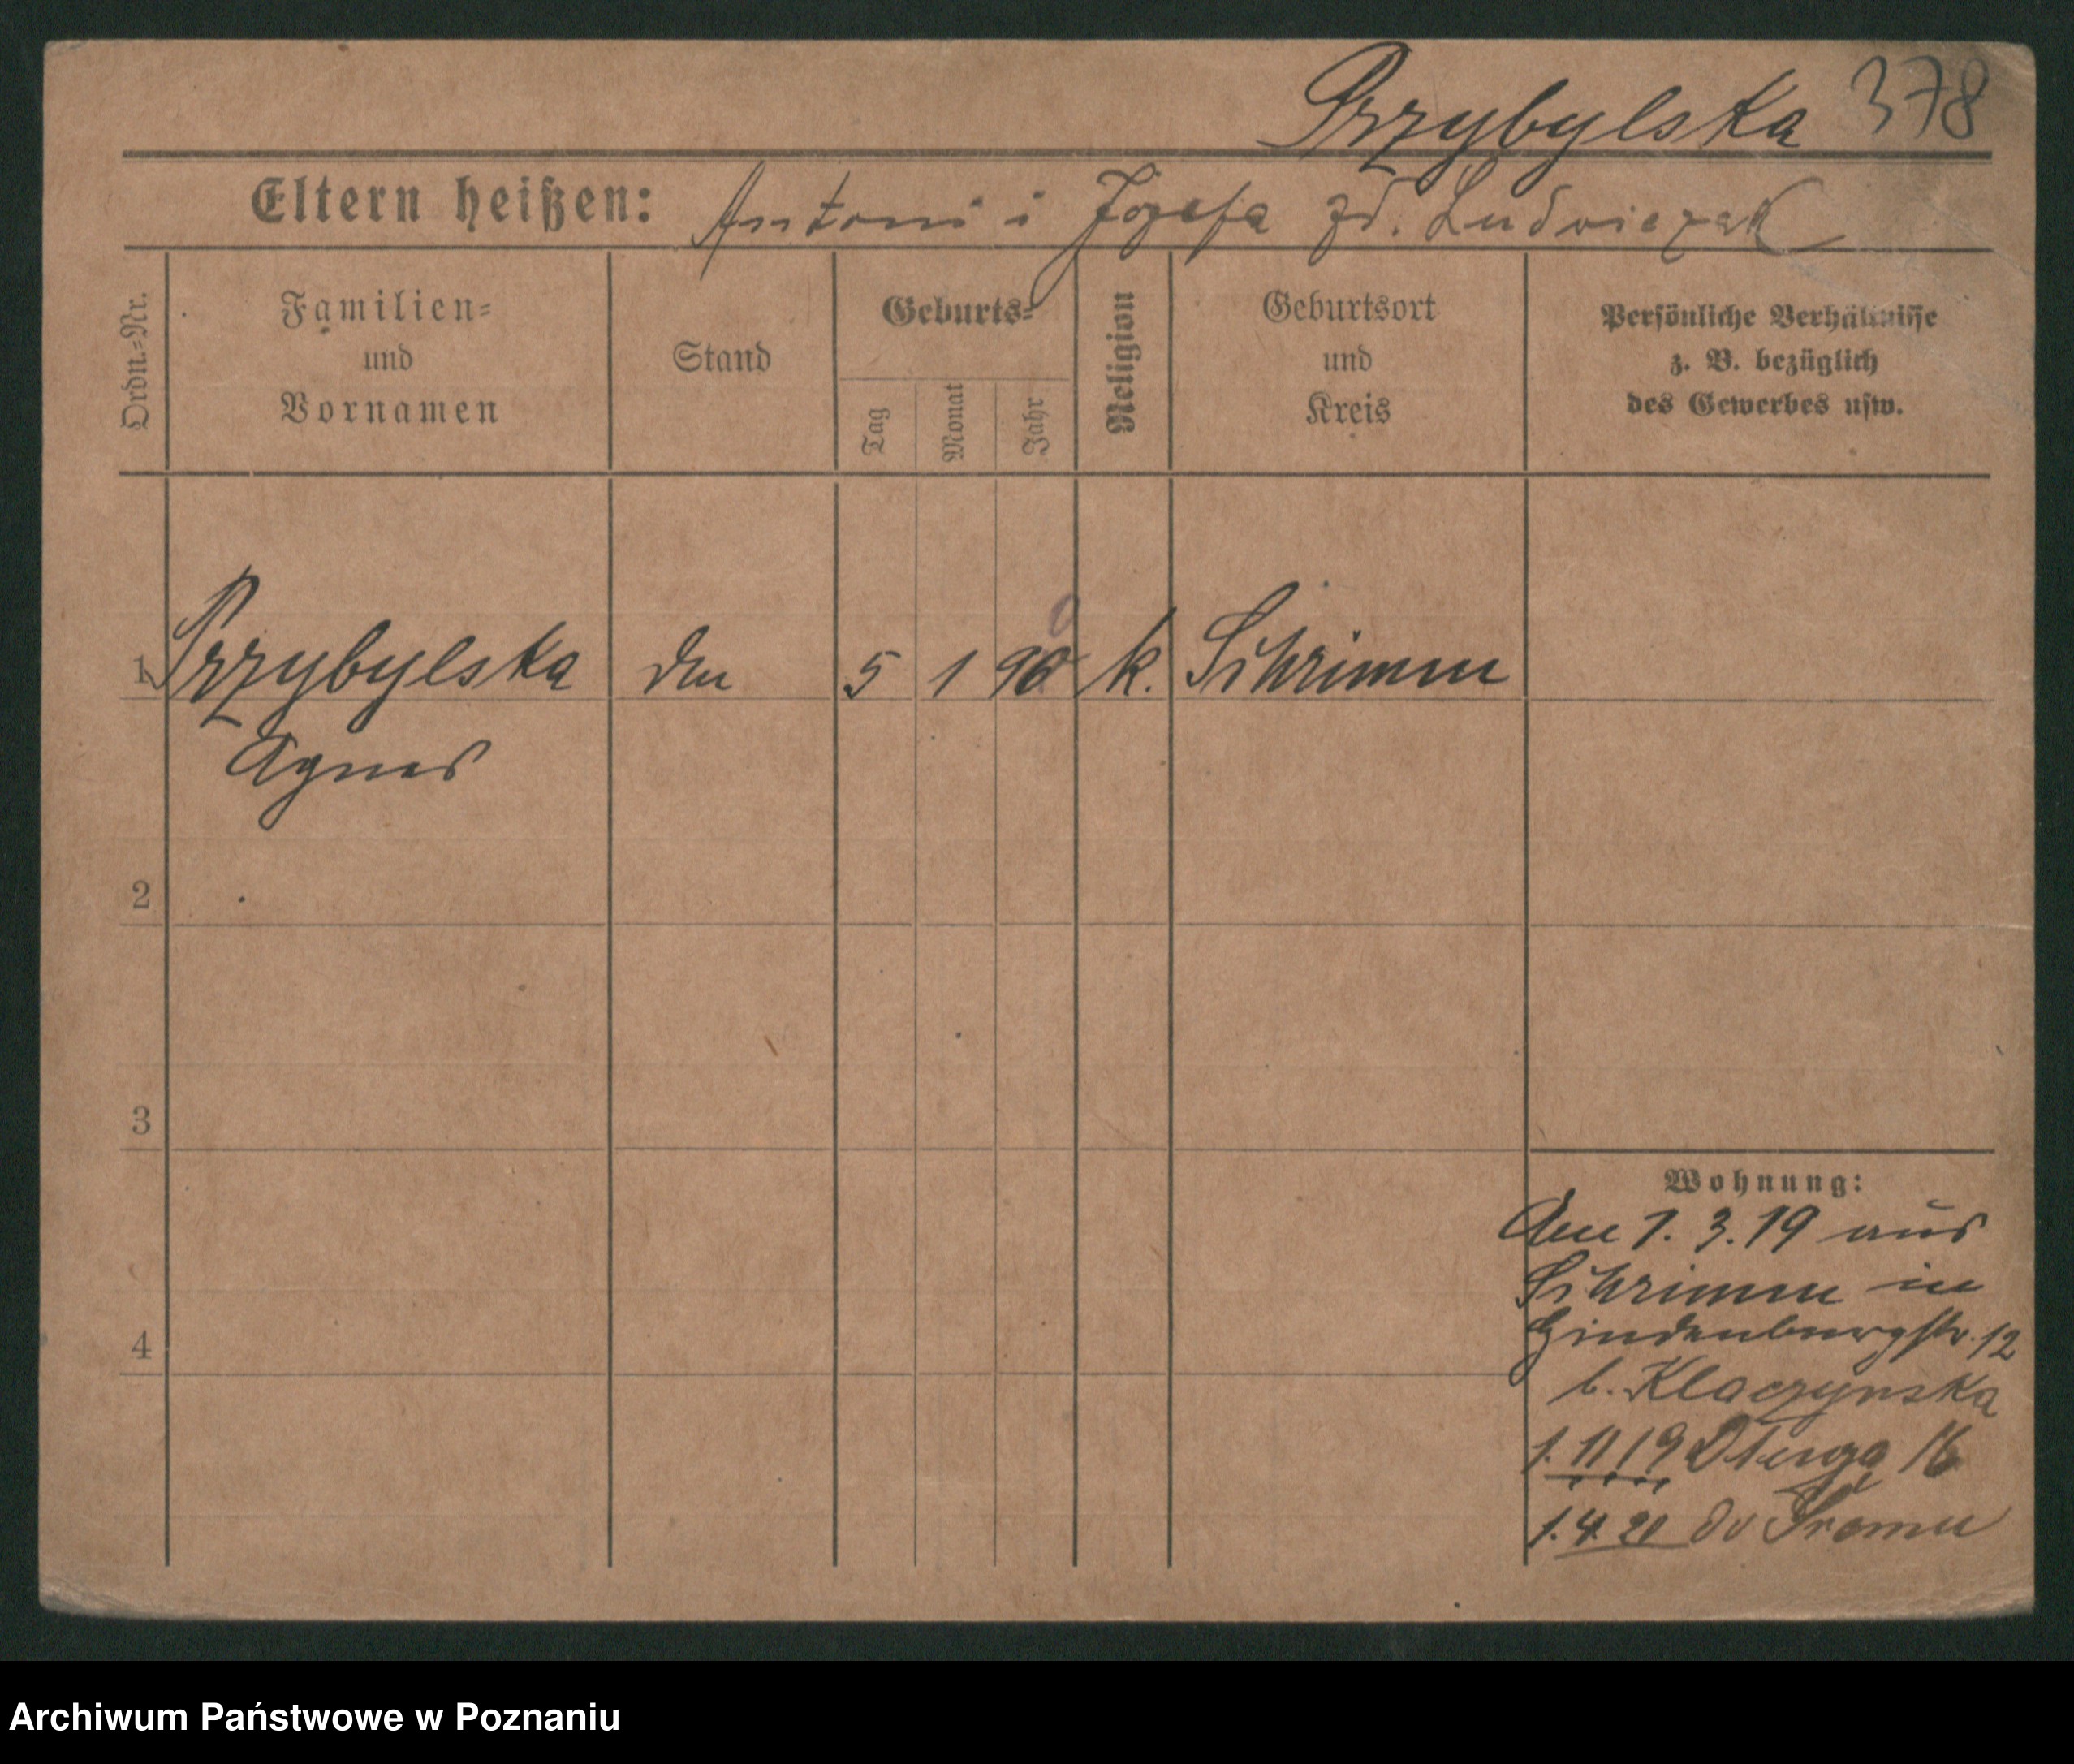 Przybylska 378
Eltern heißen: Antoni i Józefa zd. Ludwiczak
Ordn.-Nr.
Familien-
und
Vornamen
Stand
Geburts-
Tag
Monat
Jahr
Religion
Geburtsort
und
Kreis
Persönliche Verhältnisse
z. B. bezüglich
des Gewerbes usw.
1 Przybylska 5 1 90 k. Schrimm
Agnes
2
3
4
Wohnung:
Am 1. 3. 19 aus
Schrimm in
Hindenburgstr. 12
b. Klaczynska
1. 11 19 Długa 16
1. 4. 20 do Śremu
Archiwum Państwowe w Poznaniu